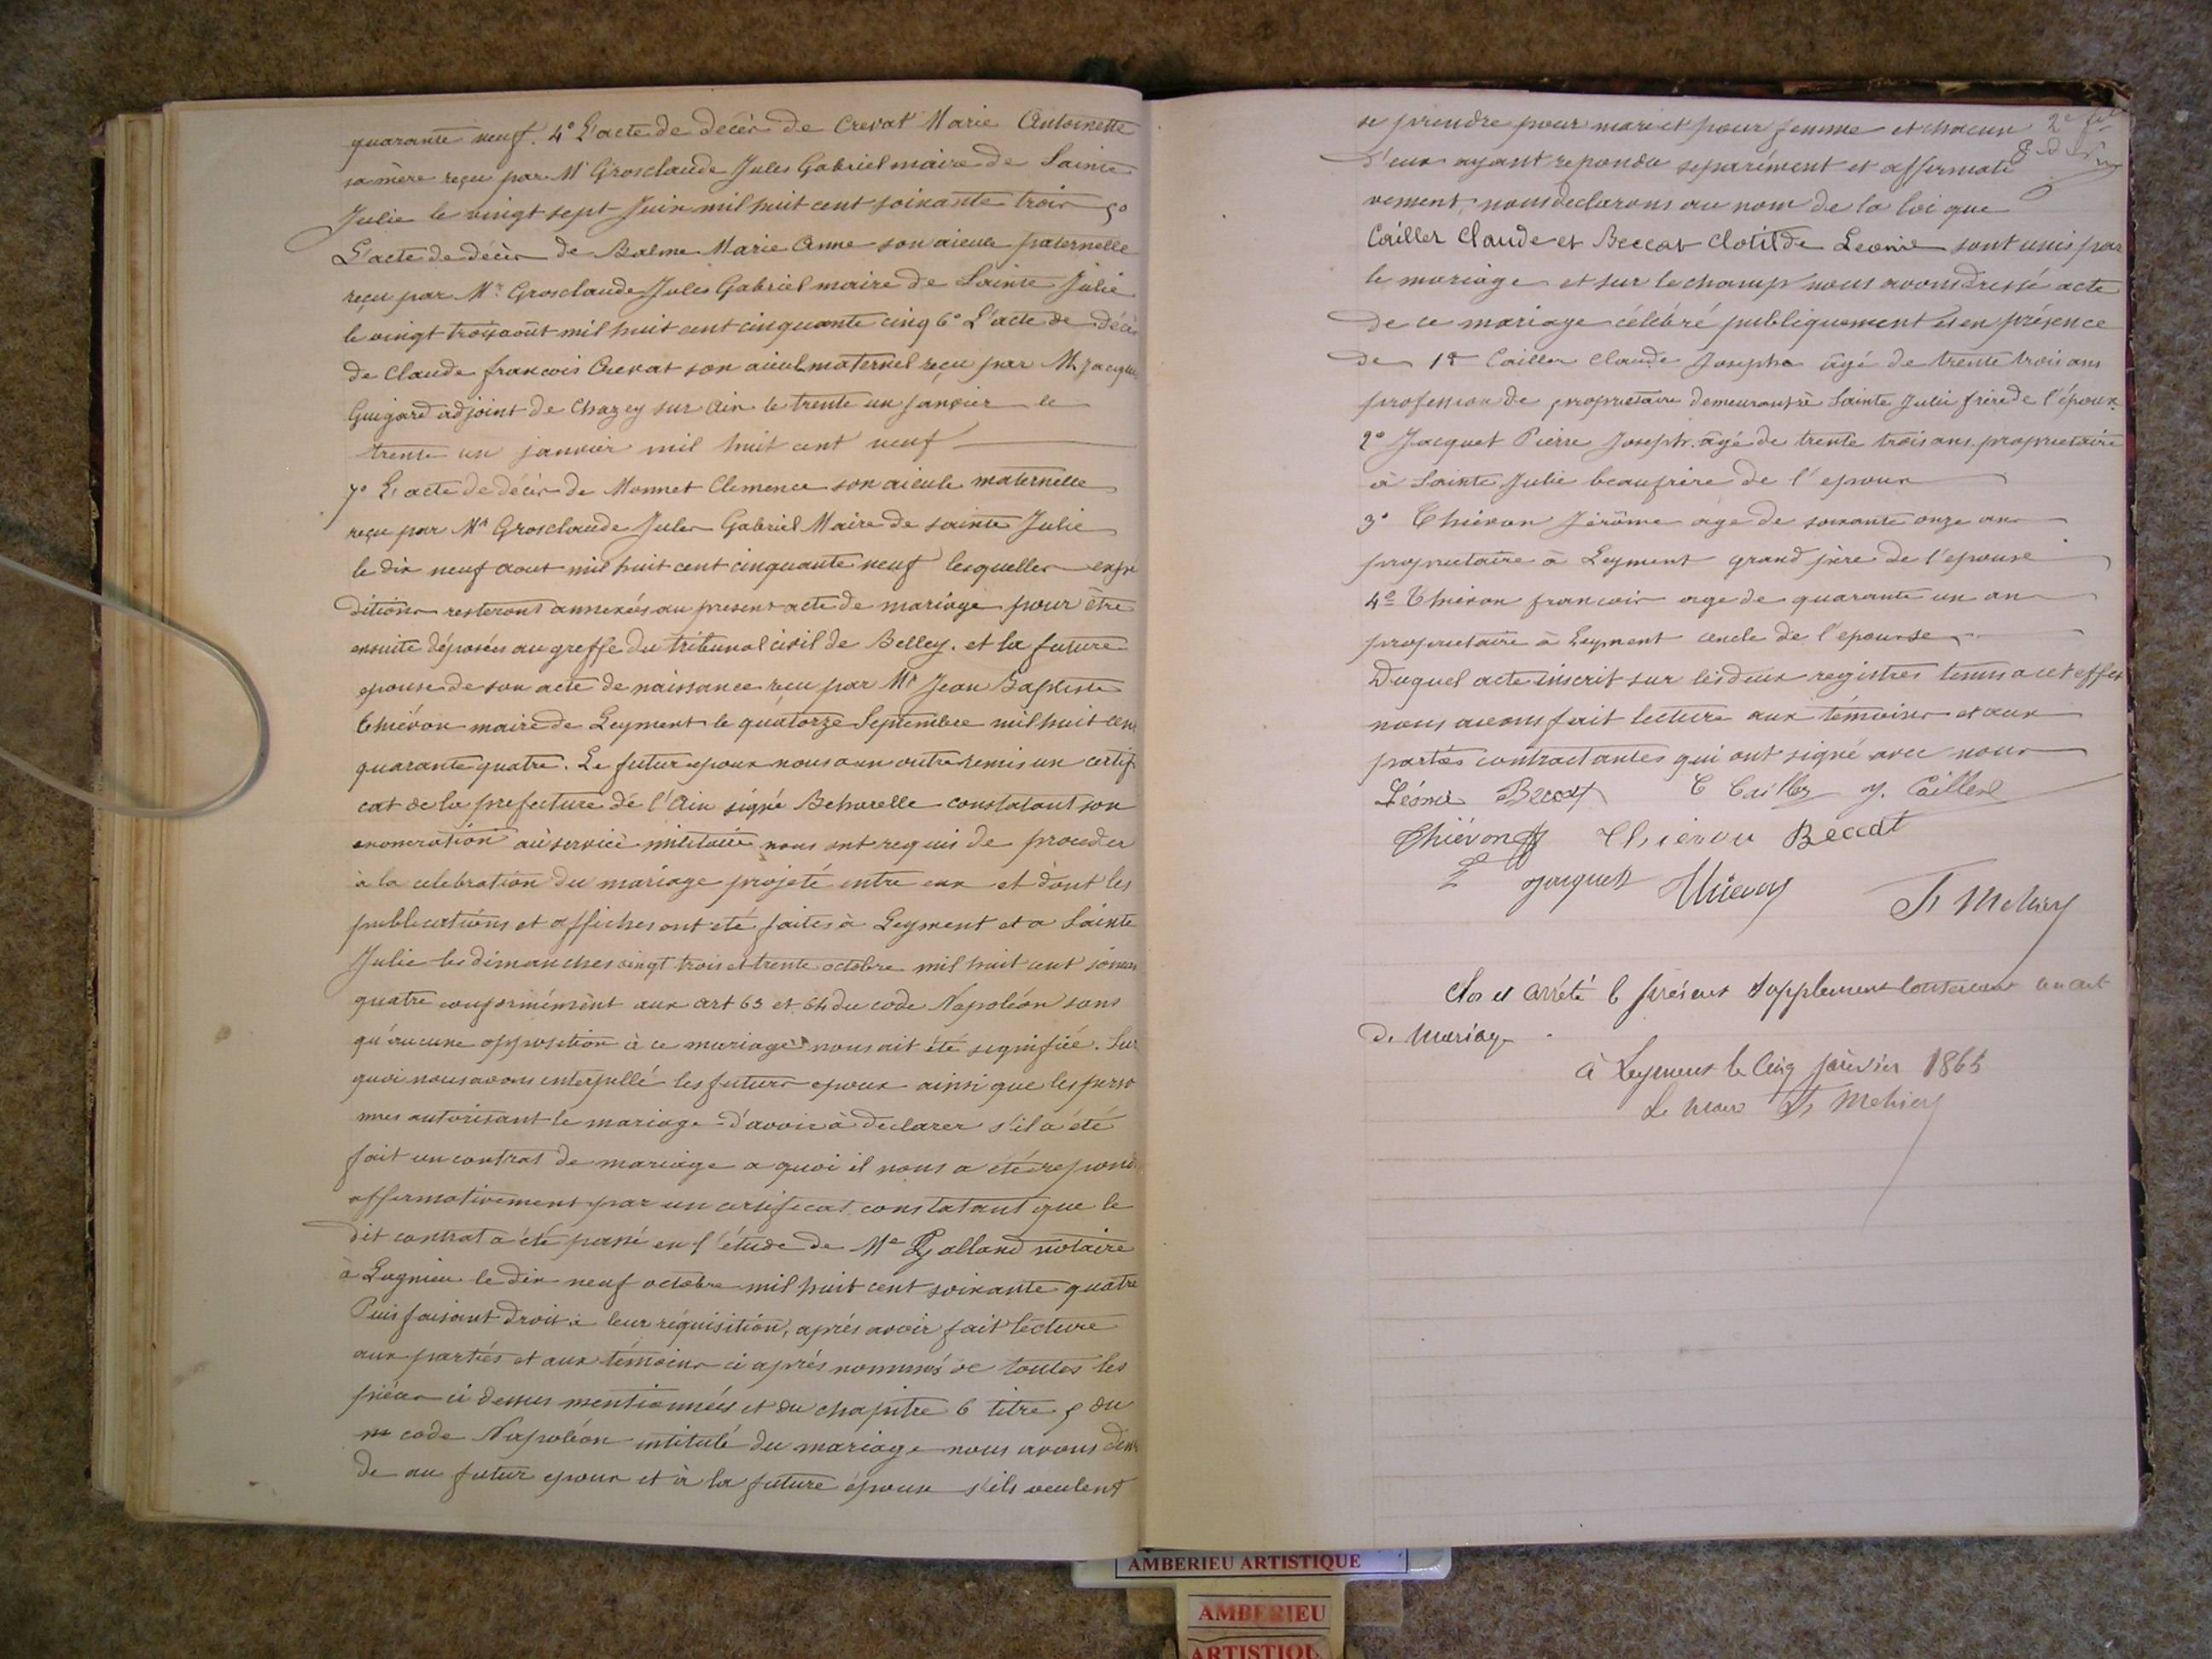 quarante neuf. 4° L'acte de décès de Crevat Marie Antoinette
sa mère reçu par Mr Grosclaude Jules Gabriel maire de Sainte
Julie le vingt sept Juin mil huit cent soixante trois 5°
L'acte de décès de Balme Marie Anne son aieule paternelle
reçu par Mr Grosclaude Jules Gabriel maire de Sainte Julie
le vingt trois août mil huit cent cinquante cinq 6° L'acte de décès
de Claude francois Crevat son aieul maternel reçu par M. Jacques
Guigard adjoint de Chazey sur Ain le trente un janvier le
trente un janvier mil huit cent neuf
7° L'acte de décès de Monnet Clemence son aieule maternelle
reçu par Mr Grosclaude Jules Gabriel Maire de sainte Julie
le dix neuf aout mil huit cent cinquante neuf lesquelles expé
ditions resteront annexées au present acte de mariage pour être
ensuite déposées au greffe du tribunal civil de Belley. et la future
epouse de son acte de naissance reçu par Mr Jean Baptiste
Thiévon maire de Leyment le quatorze Septembre mil huit cent
quarante quatre. Le futur epoux nous a en outre remis un certifi
cat de la prefecture de l'Ain signé Beharelle constatant son
exoneration au service militaire nous ont requis de proceder
à la celebration du mariage projeté entre eux et dont les
publications et affiches ont été faites à Leyment et a Sainte
Julie les dimanches vingt trois et trente octobre mil huit cent soixan
quatre conformément aux art 63 et 64 du code Napoléon sans
qu'aucune opposition à ce mariage nous ait été signifiée. Sur
quoi nous avons interpellé les futurs epoux ainsi que les perso
nnes autorisant le mariage d'avoir à declarer s'il a été
fait un contrat de mariage a quoi il nous a été repondu
affirmativement par un certificat constatant que le
dit contrat a été passé en l'étude de Me Galland notaire
à Lagnieu le dix neuf octobre mil huit cent soixante quatre
Puis faisant droit à leur réquisition, aprés avoir fait lecture
aux parties et aux témoins ci aprés nommés de toutes les
pièces ci dessus mentionnées et du chapitre 6 titre 5 du
code Napoléon intitulé du mariage nous avons deman
de au futur epoux et à la future épouse s'ils veulent
se prendre pour mari et pour femme et chacun
d'eux ayant repondu separément et affirmati
vement, nous declarons au nom de la loi que
Cailler Claude et Beccat Clotilde Leonie sont unis par
le mariage et sur le champ nous avons dressé acte
de ce mariage célébré publiquement et en présence
de 1° Cailler Claude Joseph agé de trente trois ans
profession de proprietaire demeurant à Sainte Julie frère de l'époux
2° Jacquet Pierre Joseph agé de trente trois ans proprietaire
à Sainte Julie beaufrère de l'epoux
3° Thiévon Jérôme age de soixante onze ans
proprietaire à Leyment grand père de l'epouse
4° Thiévon francois age de quarante un an
proprietaire à Leyment oncle de l'epouse
Duquel acte inscrit sur les deux registres tenus a cet effet
nous avons fait lecture aux témoins et aux
parties contractantes qui ont signé avec nous
Léonie Beccat C Cailler J. Cailler
Thiévon Thiévon Beccat
Jacquet Thiévon Fs Mehier
Clos et arrêté le présent Supplement contenant un acte
de Mariage
à Leyment le Cinq janvier 1865
Le Maire Fs Mehier
AMBERIEU ARTISTIQUE
AMBERIEU
ARTISTIQU